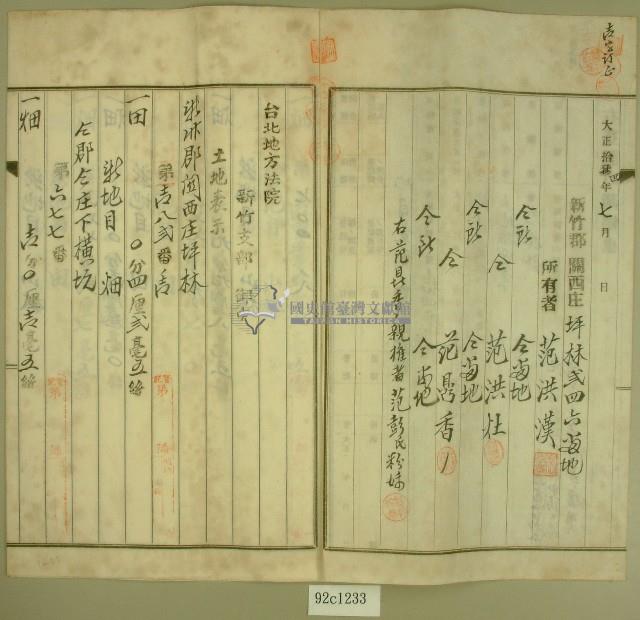 大正拾四年七月 日
新竹郡關西庄坪林弍四六番地
所有者 范洪漢
仝所 仝番地
仝 范洪灶
仝所 仝番地
仝 范昌香
仝所 仝番地
右范昌香親權者范彭氏粉妹
台北地方法院
新竹支部 御中
土地表示
新竹郡關西庄坪林
第壱八弍番ノ壱
一田 〇分四厘弍毫五絲
新地目 畑
仝郡仝庄下橫坑
第六七七番
一畑 壱分〇厘壱毫五絲
國史館臺灣文獻館
TAIWAN HISTORICA
92c1233